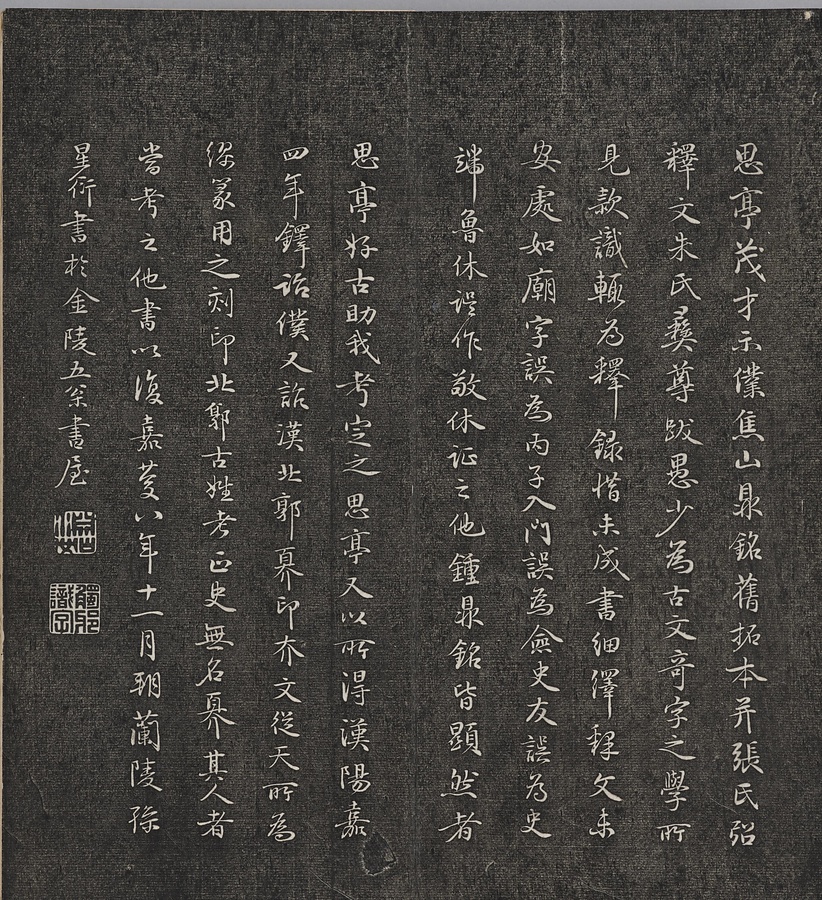 思亭茂才示僕焦山鼎銘舊拓本并張氏弨
釋文朱氏彝尊跋愚少為古文奇字之學所
見款識輒為釋録惜未成書細繹釋文未
安處如廟字誤為丙子入門誤為僉史友誤為史
端魯休誤作敬休证之他鍾鼎銘皆顯然者
思亭好古助我考定之思亭又以所得漢陽嘉
四年鐸詒僕又詒漢北郭奡印夰文從天所為
繆篆用之刻印北郭古姓考正史無名奡其人者
當考之他書以復嘉慶八年十一月朔蘭陵孫
星衍書於金陵五松書屋